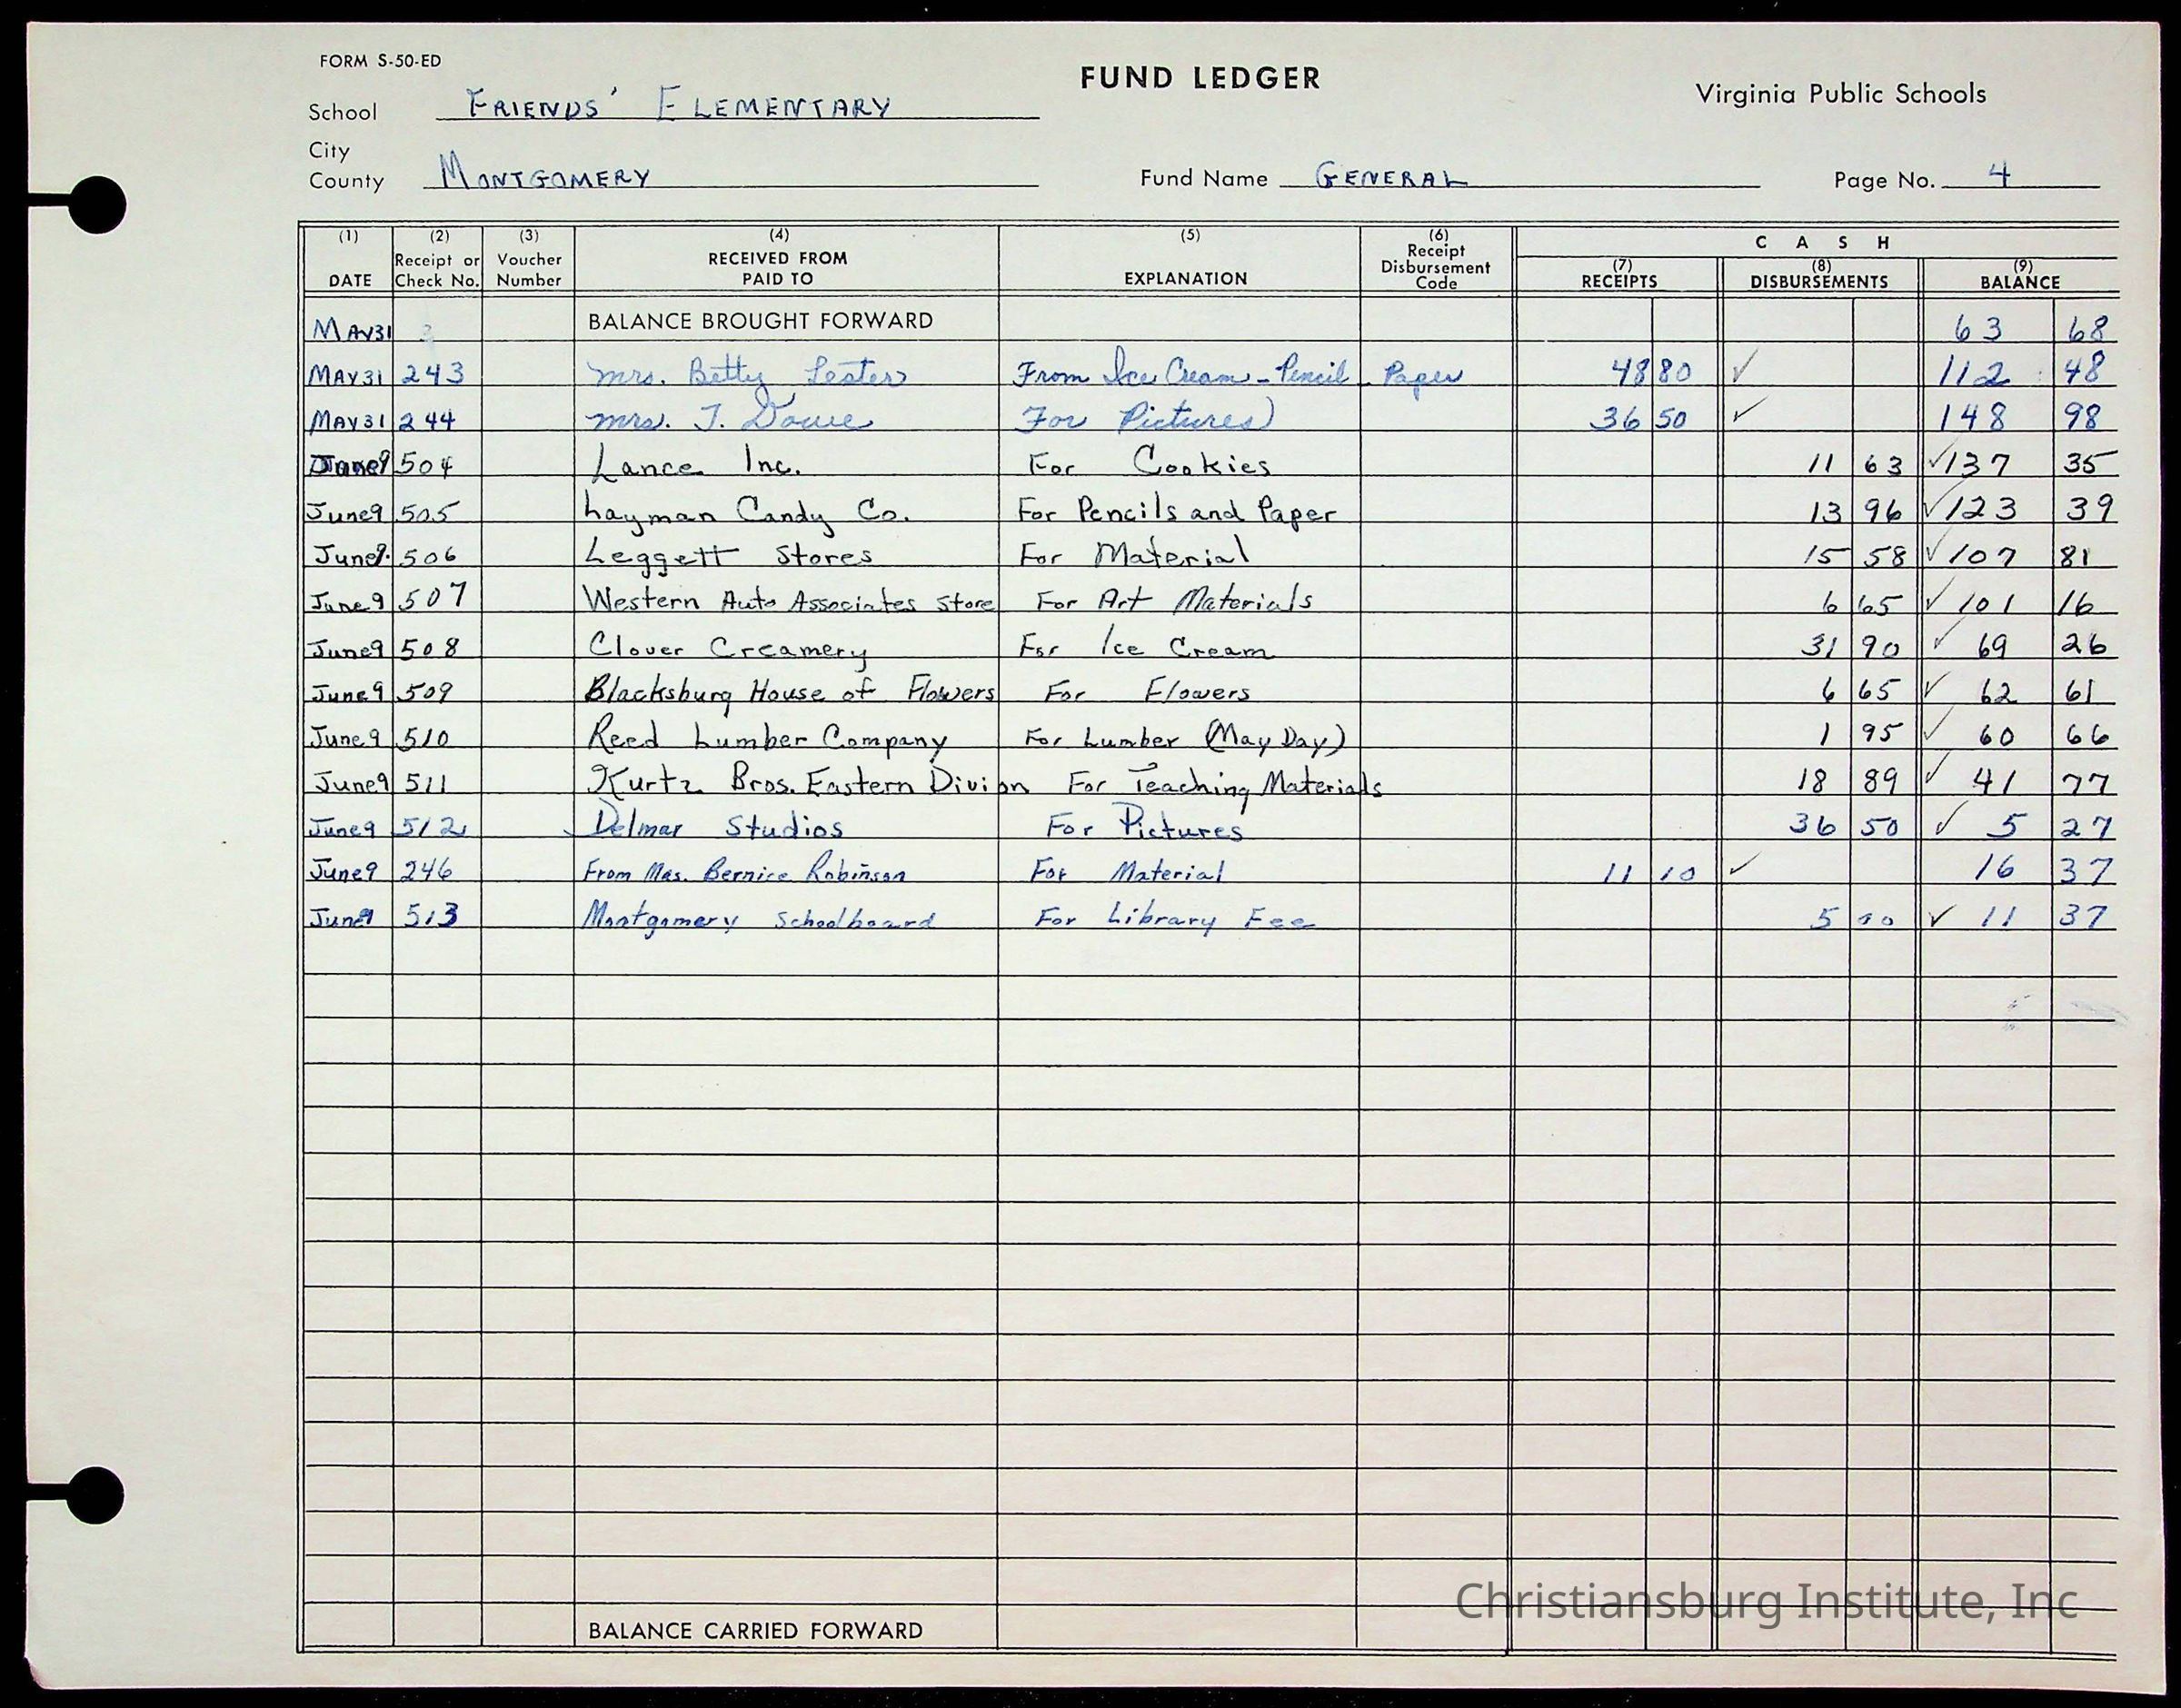 FORM S-50-ED
FUND LEDGER
Virginia Public Schools
School FRIENDS' ELEMENTARY
City
County MONTGOMERY
Fund Name GENERAL
Page No. 4
(1) (2) (3) (4) (5) (6) C A S H
DATE Receipt or Check No. Voucher Number RECEIVED FROM PAID TO EXPLANATION Receipt Disbursement Code (7) RECEIPTS (8) DISBURSEMENTS (9) BALANCE
MAY 31 BALANCE BROUGHT FORWARD 63 68
MAY 31 243 Mrs. Betty Lester From Ice Cream - Pencil - Paper 48 80 ✓ 112 48
MAY 31 244 Mrs. T. Dowe For Pictures) 36 50 ✓ 148 98
June 9 504 Lance Inc. For Cookies 11 63 ✓ 137 35
June 9 505 Layman Candy Co. For Pencils and Paper 13 96 ✓ 123 39
June 9. 506 Leggett Stores For Material 15 58 ✓ 107 81
June 9 507 Western Auto Associates Store For Art Materials 6 65 ✓ 101 16
June 9 508 Clover Creamery For Ice Cream 31 90 ✓ 69 26
June 9 509 Blacksburg House of Flowers For Flowers 6 65 ✓ 62 61
June 9 510 Reed Lumber Company For Lumber (May Day) 1 95 ✓ 60 66
June 9 511 Kurtz Bros. Eastern Divion For Teaching Materials 18 89 ✓ 41 77
June 9 512 Delmar Studios For Pictures 36 50 ✓ 5 27
June 9 246 From Mrs. Bernice Robinson For Material 11 10 ✓ 16 37
June 9 513 Montgomery Schoolboard For Library Fee 5 00 ✓ 11 37
BALANCE CARRIED FORWARD
Christiansburg Institute, Inc